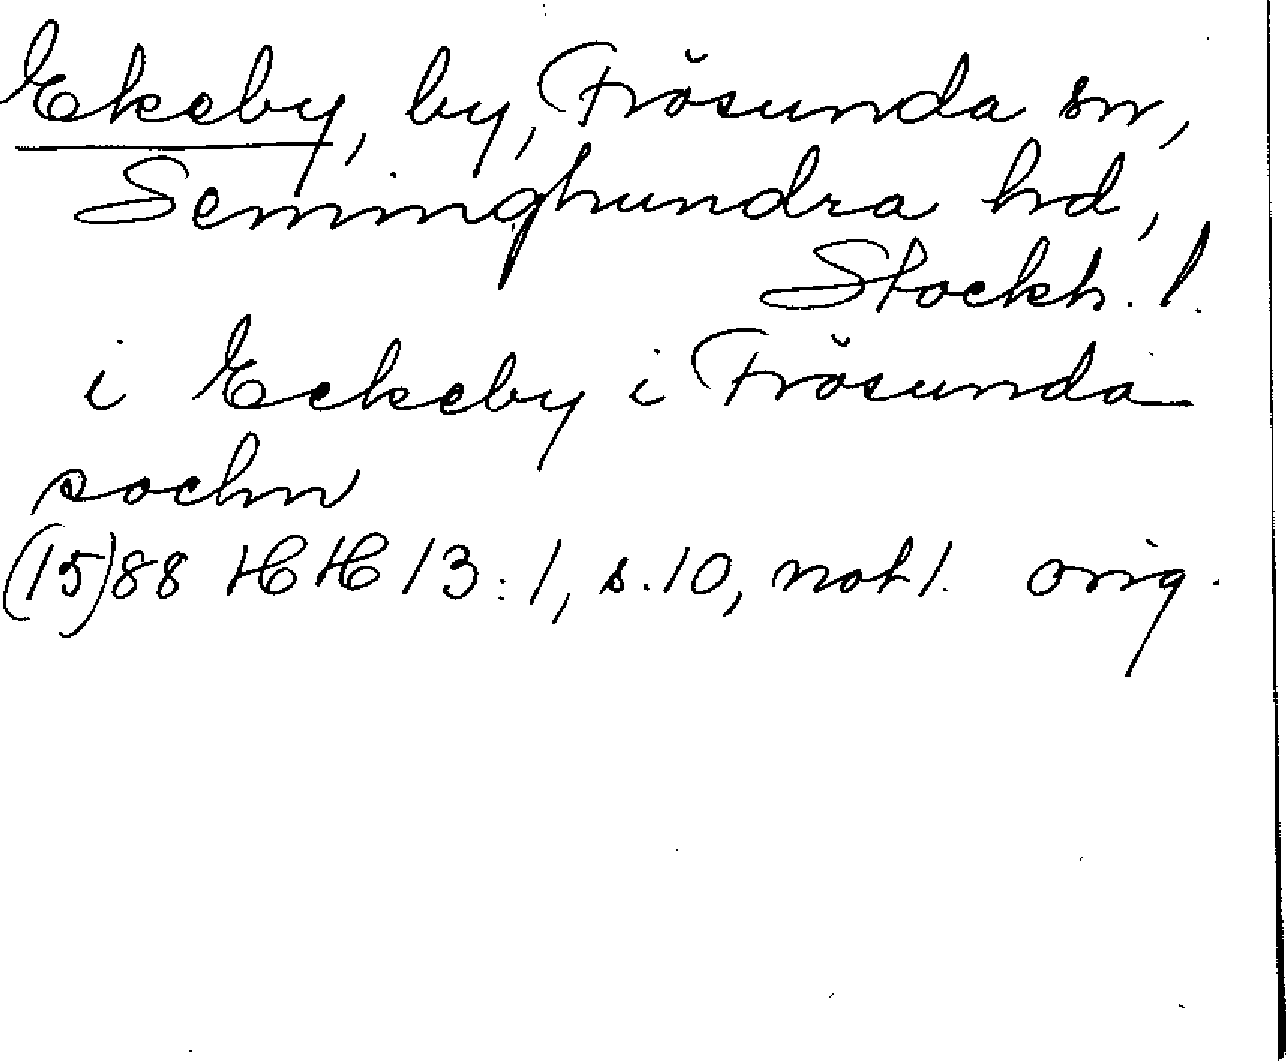 Ekeby, by, Frösunda sn,
Seminghundra hd,
Stockh. l.
i Eekeby i Frösunda
sochn
(15)88 HH 13:1, s. 10, not 1. orig.